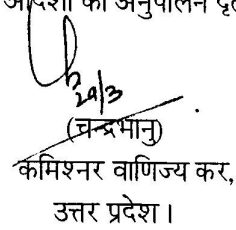 आदेशों का अनुपालन
29/3
(चन्द्रभानु)
कमिश्नर वाणिज्य कर,
उत्तर प्रदेश।